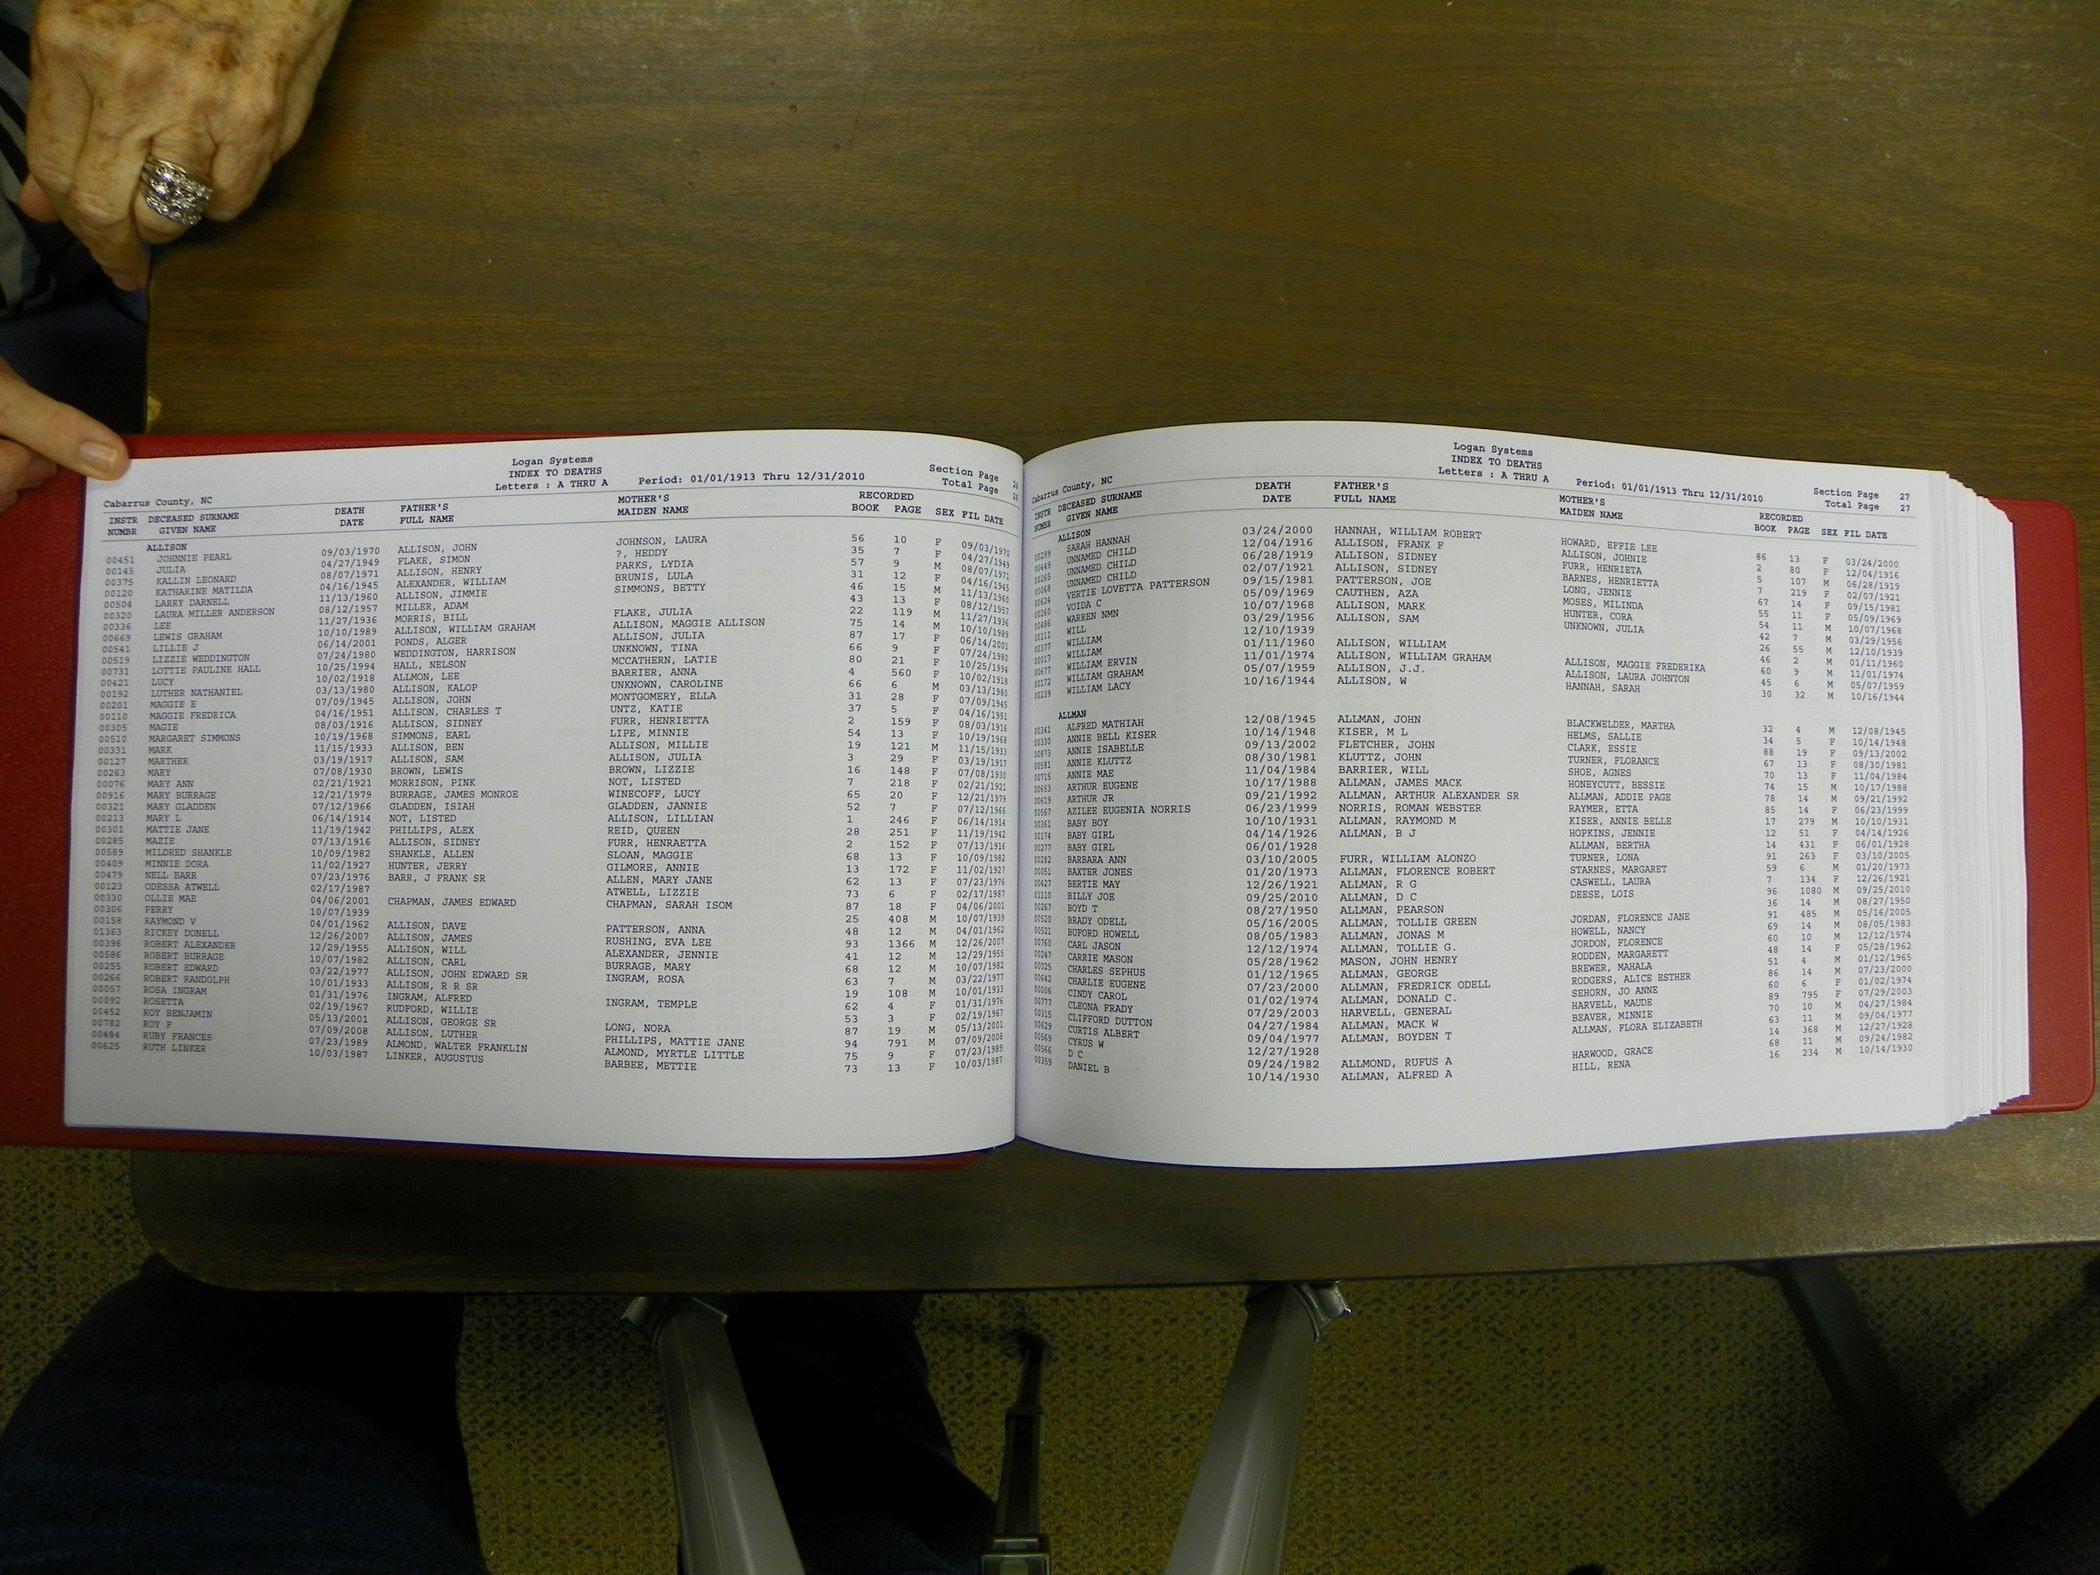 Logan Systems
INDEX TO DEATHS
Letters : A THRU A Period: 01/01/1913 Thru 12/31/2010
Section Page 26
Total Page 26
Cabarrus County, NC
INSTR DECEASED SURNAME DEATH FATHER'S MOTHER'S RECORDED
NUMBR GIVEN NAME DATE FULL NAME MAIDEN NAME BOOK PAGE SEX FIL DATE
ALLISON
00451 JOHNNIE PEARL 09/03/1970 ALLISON, JOHN JOHNSON, LAURA 56 10 F 09/03/1970
00145 JULIA 04/27/1949 FLAKE, SIMON ?, HEDDY 35 7 F 04/27/1949
00375 KALLIN LEONARD 08/07/1971 ALLISON, HENRY PARKS, LYDIA 57 9 M 08/07/1971
00120 KATHARINE MATILDA 04/16/1945 ALEXANDER, WILLIAM BRUNIS, LULA 31 12 F 04/16/1945
00504 LARRY DARNELL 11/13/1960 ALLISON, JIMMIE SIMMONS, BETTY 46 15 M 11/13/1960
00320 LAURA MILLER ANDERSON 08/12/1957 MILLER, ADAM 43 13 F 08/12/1957
00336 LEE 11/27/1936 MORRIS, BILL FLAKE, JULIA 22 119 M 11/27/1936
00669 LEWIS GRAHAM 10/10/1989 ALLISON, WILLIAM GRAHAM ALLISON, MAGGIE ALLISON 75 14 M 10/10/1989
00541 LILLIE J 06/14/2001 PONDS, ALGER ALLISON, JULIA 87 17 F 06/14/2001
00519 LIZZIE WEDDINGTON 07/24/1980 WEDDINGTON, HARRISON UNKNOWN, TINA 66 9 F 07/24/1980
00731 LOTTIE PAULINE HALL 10/25/1994 HALL, NELSON MCCATHERN, LATIE 80 21 F 10/25/1994
00421 LUCY 10/02/1918 ALLMON, LEE BARRIER, ANNA 4 560 F 10/02/1918
00192 LUTHER NATHANIEL 03/13/1980 ALLISON, KALOP UNKNOWN, CAROLINE 66 6 M 03/13/1980
00201 MAGGIE E 07/09/1945 ALLISON, JOHN MONTGOMERY, ELLA 31 28 F 07/09/1945
00110 MAGGIE FREDRICA 04/16/1951 ALLISON, CHARLES T UNTZ, KATIE 37 5 F 04/16/1951
00305 MAGIE 08/03/1916 ALLISON, SIDNEY FURR, HENRIETTA 2 159 F 08/03/1916
00510 MARGARET SIMMONS 10/19/1968 SIMMONS, EARL LIPE, MINNIE 54 13 F 10/19/1968
00331 MARK 11/15/1933 ALLISON, BEN ALLISON, MILLIE 19 121 M 11/15/1933
00127 MARTHER 03/19/1917 ALLISON, SAM ALLISON, JULIA 3 29 F 03/19/1917
00263 MARY 07/08/1930 BROWN, LEWIS BROWN, LIZZIE 16 148 F 07/08/1930
00076 MARY ANN 02/21/1921 MORRISON, PINK NOT, LISTED 7 218 F 02/21/1921
00916 MARY BURRAGE 12/21/1979 BURRAGE, JAMES MONROE WINECOFF, LUCY 65 20 F 12/21/1979
00321 MARY GLADDEN 07/12/1966 GLADDEN, ISIAH GLADDEN, JANNIE 52 7 F 07/12/1966
00213 MARY L 06/14/1914 NOT, LISTED ALLISON, LILLIAN 1 246 F 06/14/1914
00301 MATTIE JANE 11/19/1942 PHILLIPS, ALEX REID, QUEEN 28 251 F 11/19/1942
00285 MAZIE 07/13/1916 ALLISON, SIDNEY FURR, HENRAETTA 2 152 F 07/13/1916
00589 MILDRED SHANKLE 10/09/1982 SHANKLE, ALLEN SLOAN, MAGGIE 68 13 F 10/09/1982
00409 MINNIE DORA 11/02/1927 HUNTER, JERRY GILMORE, ANNIE 13 172 F 11/02/1927
00479 NELL BARR 07/23/1976 BARR, J FRANK SR ALLEN, MARY JANE 62 13 F 07/23/1976
00123 ODESSA ATWELL 02/17/1987 ATWELL, LIZZIE 73 6 F 02/17/1987
00330 OLLIE MAE 04/06/2001 CHAPMAN, JAMES EDWARD CHAPMAN, SARAH ISOM 87 18 F 04/06/2001
00306 PERRY 10/07/1939 25 408 M 10/07/1939
00158 RAYMOND V 04/01/1962 ALLISON, DAVE PATTERSON, ANNA 48 12 M 04/01/1962
01363 RICKEY DONELL 12/26/2007 ALLISON, JAMES RUSHING, EVA LEE 93 1366 M 12/26/2007
00396 ROBERT ALEXANDER 12/29/1955 ALLISON, WILL ALEXANDER, JENNIE 41 12 M 12/29/1955
00586 ROBERT BURRAGE 10/07/1982 ALLISON, CARL BURRAGE, MARY 68 12 M 10/07/1982
00255 ROBERT EDWARD 03/22/1977 ALLISON, JOHN EDWARD SR INGRAM, ROSA 63 7 M 03/22/1977
00266 ROBERT RANDOLPH 10/01/1933 ALLISON, R R SR 19 108 M 10/01/1933
00057 ROSA INGRAM 01/31/1976 INGRAM, ALFRED INGRAM, TEMPLE 62 4 F 01/31/1976
00092 ROSETTA 02/19/1967 RUDFORD, WILLIE 53 3 F 02/19/1967
00452 ROY BENJAMIN 05/13/2001 ALLISON, GEORGE SR LONG, NORA 87 19 M 05/13/2001
00782 ROY F 07/09/2008 ALLISON, LUTHER PHILLIPS, MATTIE JANE 94 791 M 07/09/2008
00484 RUBY FRANCES 07/23/1989 ALMOND, WALTER FRANKLIN ALMOND, MYRTLE LITTLE 75 9 F 07/23/1989
00625 RUTH LINKER 10/03/1987 LINKER, AUGUSTUS BARBEE, METTIE 73 13 F 10/03/1987
Logan Systems
INDEX TO DEATHS
Letters : A THRU A Period: 01/01/1913 Thru 12/31/2010
Section Page 27
Total Page 27
Cabarrus County, NC
INSTR DECEASED SURNAME DEATH FATHER'S MOTHER'S RECORDED
NUMBR GIVEN NAME DATE FULL NAME MAIDEN NAME BOOK PAGE SEX FIL DATE
ALLISON
00299 SARAH HANNAH 03/24/2000 HANNAH, WILLIAM ROBERT HOWARD, EFFIE LEE 86 13 F 03/24/2000
00449 UNNAMED CHILD 12/04/1916 ALLISON, FRANK F ALLISON, JOHNIE 2 80 F 12/04/1916
00265 UNNAMED CHILD 06/28/1919 ALLISON, SIDNEY FURR, HENRIETA 5 107 M 06/28/1919
00068 UNNAMED CHILD 02/07/1921 ALLISON, SIDNEY BARNES, HENRIETTA 7 219 F 02/07/1921
00624 VERTIE LOVETTA PATTERSON 09/15/1981 PATTERSON, JOE LONG, JENNIE 67 14 F 09/15/1981
00260 VOIDA C 05/09/1969 CAUTHEN, AZA MOSES, MILINDA 55 11 F 05/09/1969
00486 WARREN NMN 10/07/1968 ALLISON, MARK HUNTER, CORA 54 11 M 10/07/1968
00111 WILL 03/29/1956 ALLISON, SAM UNKNOWN, JULIA 42 7 M 03/29/1956
00377 WILLIAM 12/10/1939 26 55 M 12/10/1939
00017 WILLIAM 01/11/1960 ALLISON, WILLIAM 46 2 M 01/11/1960
00677 WILLIAM ERVIN 11/01/1974 ALLISON, WILLIAM GRAHAM ALLISON, MAGGIE FREDERIKA 60 9 M 11/01/1974
00172 WILLIAM GRAHAM 05/07/1959 ALLISON, J.J. ALLISON, LAURA JOHNTON 45 6 M 05/07/1959
00239 WILLIAM LACY 10/16/1944 ALLISON, W HANNAH, SARAH 30 32 M 10/16/1944
ALLMAN
00341 ALFRED MATHIAH 12/08/1945 ALLMAN, JOHN BLACKWELDER, MARTHA 32 4 M 12/08/1945
00330 ANNIE BELL KISER 10/14/1948 KISER, M L HELMS, SALLIE 34 5 F 10/14/1948
00873 ANNIE ISABELLE 09/13/2002 FLETCHER, JOHN CLARK, ESSIE 88 19 F 09/13/2002
00581 ANNIE KLUTTZ 08/30/1981 KLUTTZ, JOHN TURNER, FLORANCE 67 13 F 08/30/1981
00715 ANNIE MAE 11/04/1984 BARRIER, WILL SHOE, AGNES 70 13 F 11/04/1984
00653 ARTHUR EUGENE 10/17/1988 ALLMAN, JAMES MACK HONEYCUTT, BESSIE 74 15 M 10/17/1988
00619 ARTHUR JR 09/21/1992 ALLMAN, ARTHUR ALEXANDER SR ALLMAN, ADDIE PAGE 78 14 M 09/21/1992
00567 AZILEE EUGENIA NORRIS 06/23/1999 NORRIS, ROMAN WEBSTER RAYMER, ETTA 85 14 F 06/23/1999
00361 BABY BOY 10/10/1931 ALLMAN, RAYMOND M KISER, ANNIE BELLE 17 279 M 10/10/1931
00174 BABY GIRL 04/14/1926 ALLMAN, B J HOPKINS, JENNIE 12 51 F 04/14/1926
00277 BABY GIRL 06/01/1928 ALLMAN, BERTHA 14 431 F 06/01/1928
00282 BARBARA ANN 03/10/2005 FURR, WILLIAM ALONZO TURNER, LONA 91 263 F 03/10/2005
00051 BAXTER JONES 01/20/1973 ALLMAN, FLORENCE ROBERT STARNES, MARGARET 59 6 M 01/20/1973
00427 BERTIE MAY 12/26/1921 ALLMAN, R G CASWELL, LAURA 7 134 F 12/26/1921
01110 BILLY JOE 09/25/2010 ALLMAN, D C DEESE, LOIS 96 1080 M 09/25/2010
00267 BOYD T 08/27/1950 ALLMAN, PEARSON 36 14 M 08/27/1950
00520 BRADY ODELL 05/16/2005 ALLMAN, TOLLIE GREEN JORDAN, FLORENCE JANE 91 485 M 05/16/2005
00521 BUFORD HOWELL 08/05/1983 ALLMAN, JONAS M HOWELL, NANCY 69 14 M 08/05/1983
00760 CARL JASON 12/12/1974 ALLMAN, TOLLIE G. JORDON, FLORENCE 60 10 M 12/12/1974
00247 CARRIE MASON 05/28/1962 MASON, JOHN HENRY RODDEN, MARGARETT 48 14 F 05/28/1962
00025 CHARLES SEPHUS 01/12/1965 ALLMAN, GEORGE BREWER, MAHALA 51 4 M 01/12/1965
00642 CHARLIE EUGENE 07/23/2000 ALLMAN, FREDRICK ODELL RODGERS, ALICE ESTHER 86 14 M 07/23/2000
00006 CINDY CAROL 01/02/1974 ALLMAN, DONALD C. SEHORN, JO ANNE 60 6 F 01/02/1974
00777 CLEONA FRADY 07/29/2003 HARVELL, GENERAL HARVELL, MAUDE 89 795 F 07/29/2003
00315 CLIFFORD DUTTON 04/27/1984 ALLMAN, MACK W BEAVER, MINNIE 70 10 M 04/27/1984
00629 CURTIS ALBERT 09/04/1977 ALLMAN, BOYDEN T ALLMAN, FLORA ELIZABETH 63 11 M 09/04/1977
00569 CYRUS W 12/27/1928 14 368 M 12/27/1928
00566 D C 09/24/1982 ALLMOND, RUFUS A HARWOOD, GRACE 68 11 M 09/24/1982
00359 DANIEL B 10/14/1930 ALLMAN, ALFRED A HILL, RENA 16 234 M 10/14/1930